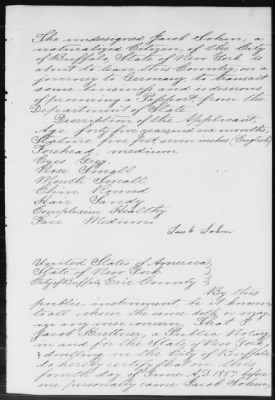 The undersigned Jacob Sohm, a
naturalized Citizen, of the City
of Buffalo, State of New York is
about to leave this Country, on a
journey to Germany, to transact
some business and is desirous
of procuring a Passport, from the
Department of State.
Description of the Applicant,
Age forty five years and six months,
Stature five feet seven inches (English)
Forehead medium
Eyes Grey
Nose Small
Mouth Small
Chin Round
Hair Sandy
Complexion Healthy
Face Medium
Jacob Sohm
United States of America }
State of New York }
City of Buffalo, Erie County }
By this
public instrument, be it known
to all whom the same doth, or may
in any wise concern. That I
Jacob a Public Notary
in and for the State of New York,
dwelling in the City of Buffalo,
do hereby certify that on this
fourth day of June A.D. before
me personally came Jacob Sohm,